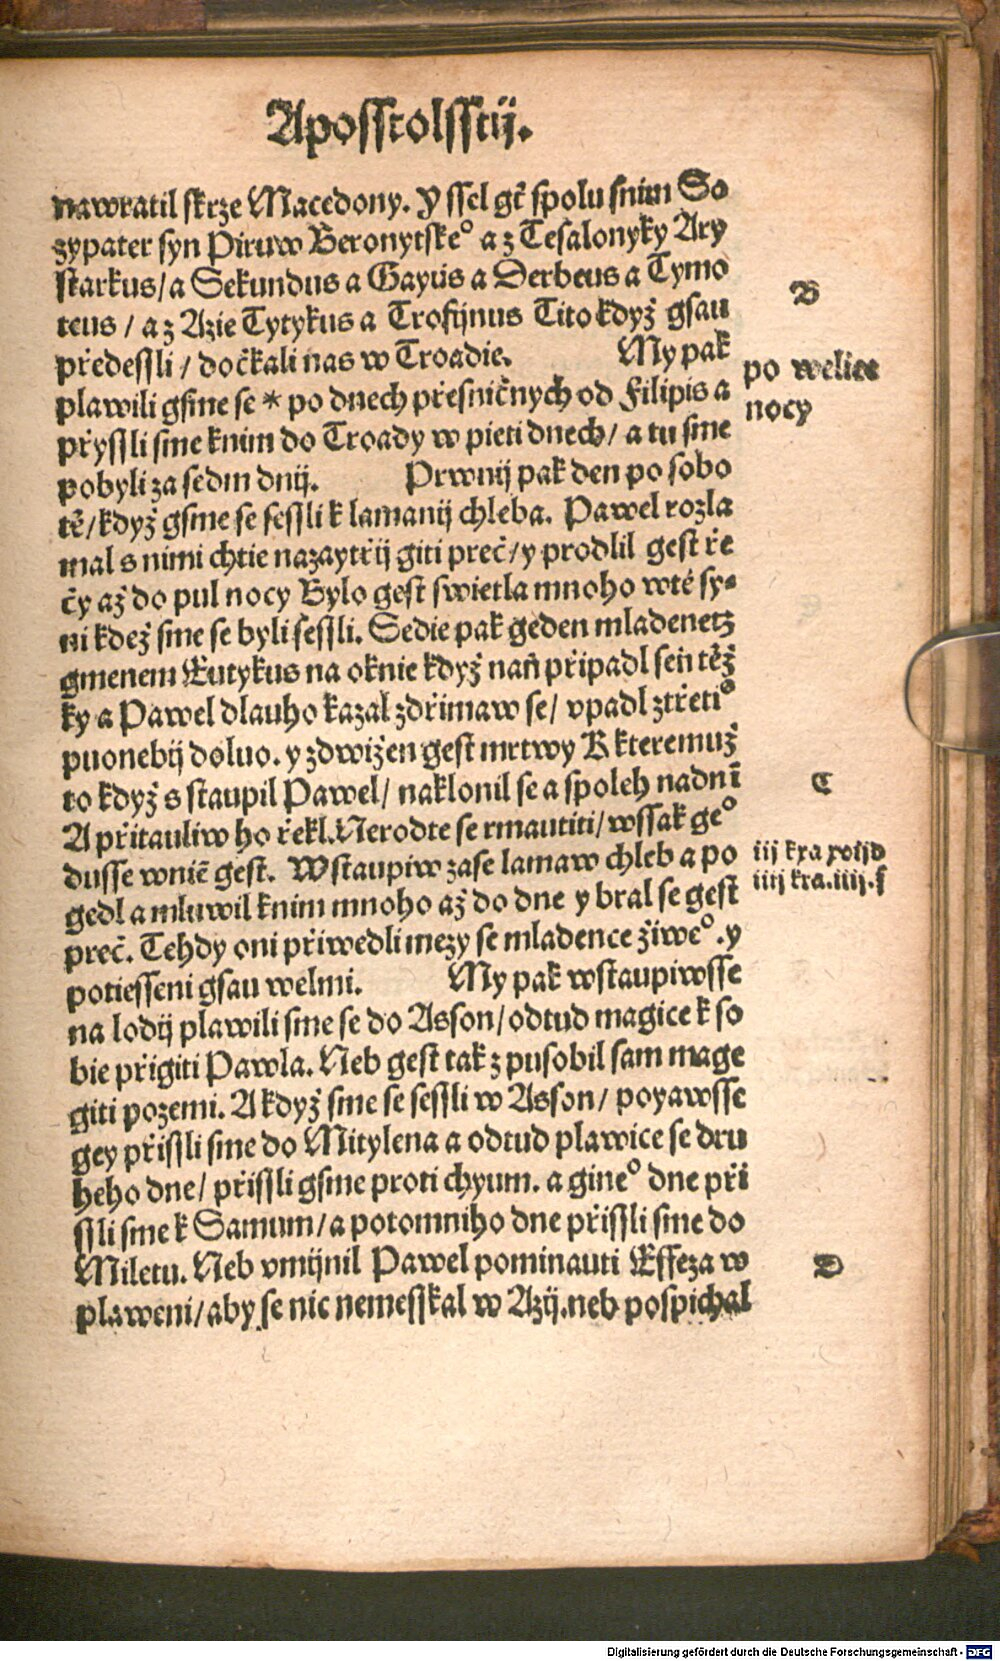 Aposstolsstij.
nawratil skrze Macedony. Y ssel gt̃ spolu snim So
zypater syn Piruw Beronytske° a z Tesalonyky Ary
starkus/ a Sekundus a Gayús a Derbeus a Tymo
teus / a z Azie Tytykus a Trofijnus Tito když gsau
B
předessli / dočkali nas w Troadie. My pak
po welice
plawili gsme se * po dnech přesničnych od Filipis a
nocy
přyssli sme knim do Troady w pieti dnech/ a tu sme
pobyli za sedm dnij. Prwnij pak den po sobo
tě/ když gsme se sessli k lamanij chleba. Pawel rozla
mal s nimi chtie nazaytřij giti preč/ y prodlil gest ře
čy až do pul nocy Bylo gest swietla mnoho wté sy-
ni kdež sme se byli sessli. Sedie pak geden mladenetz
gmenem Eutykus na oknie když nañ připadl sen těž
ky a Pawel dlauho kazal zdřimaw se/ vpadl ztřeti°
puonebij doluo. y zdwižen gest mrtwy K kteremuž
to když s staupil Pawel/ naklonil se a spoleh nadnī
C
A přitauliw ho řekl. Nerodte se rmautiti/ wssak ge°
dusse wniē gest. Wstaupiw zase lamaw chleb a po
iij kra xvijd
gedl a mluwil knim mnoho až do dne y bral se gest
iiij kra.iiij.f
preč. Tehdy oni přiwedli mezy se mladence žiwe°. y
potiesseni gsau welmi. My pak wstaupiwsse
na lodij plawili sme se do Asson/ odtud magice k so
bie přigiti Pawla. Neb gest tak z pusobil sam mage
giti pozemi. A když sme se sessli w Asson/ poyawsse
gey přissli sme do Mitylena a odtud plawice se dru
heho dne/ přissli gsme proti chyum. a gine° dne při
ssli sme k Samum/ a potomniho dne přissli sme do
Miletu. Neb vmijnil Pawel pominauti Effeza w
D
plaweni/ aby se nic nemesskal w Azij. neb pospichal
Digitalisierung gefördert durch die Deutsche Forschungsgemeinschaft - DFG